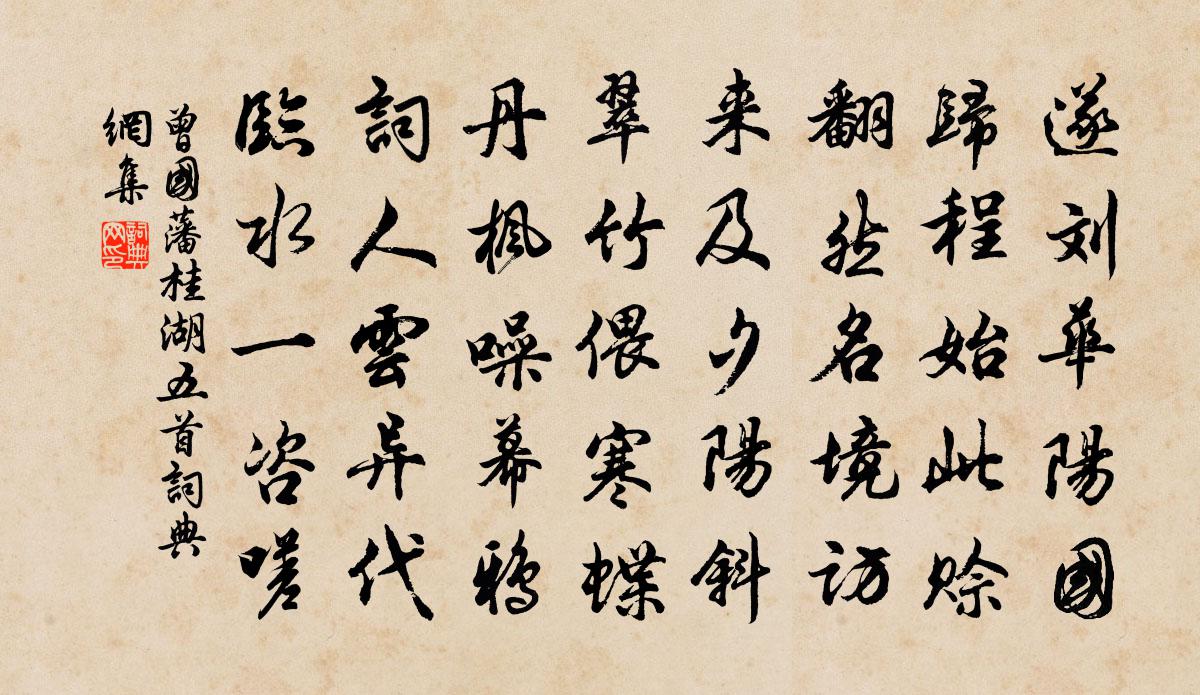 遂刘華陽國
歸程始此賒
翻然名境訪
来及夕陽斜
翠竹偎寒蝶
丹楓噪幕鴉
詞人雲异代
臨水一咨嗟
曾國藩桂湖五首詞典
網集
詞典
网印